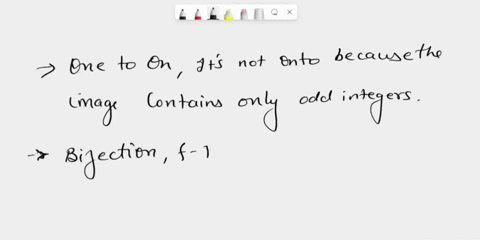 → One to On, It's not onto because the
image Contains only odd integers.
→ Bijection, f-1